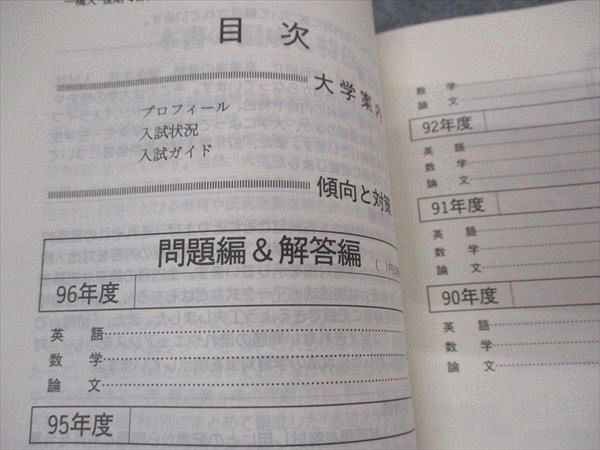 目次
大学案内
プロフィール
入試状況
入試ガイド
傾向と対策
問題編＆解答編
96年度
英語
数学
論文
95年度
数学
論文
92年度
英語
数学
論文
91年度
英語
数学
論文
90年度
英語
数学
論文